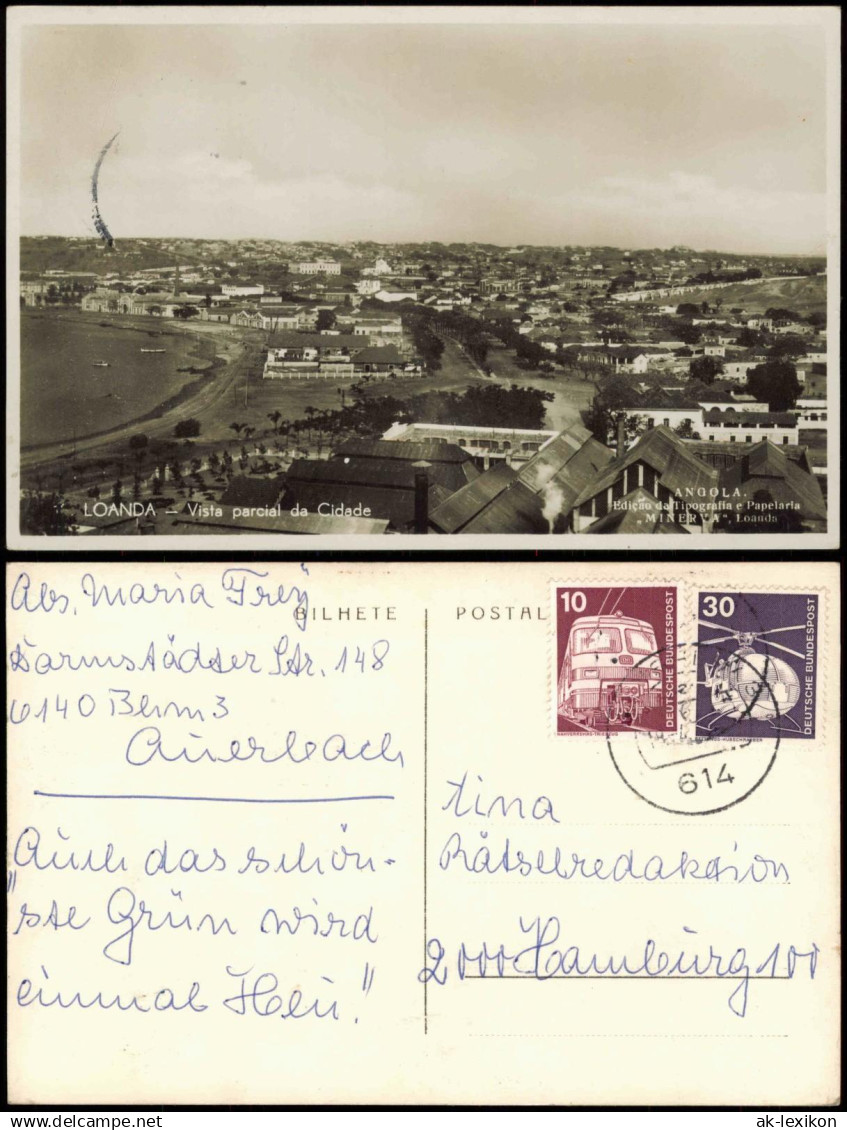 LOANDA – Vista parcial da Cidade
ANGOLA.
Edição da Tipografia e Papelaria
„MINERVA", Loanda
Abs. Maria Frey
Darmstädter Str. 148
6140 Bensh. 3
Auerbach
„Auch das schön-
ste Grün wird
einmal Heu!"
BILHETE POSTAL
10
DEUTSCHE BUNDESPOST
30
DEUTSCHE BUNDESPOST
614
tina
Rätselredaktion
2000 Hamburg 100
ak-lexikon.de